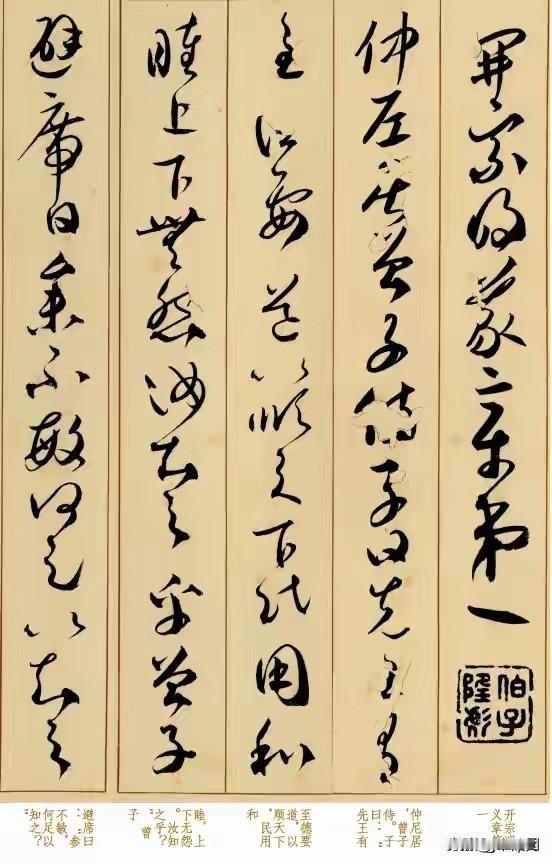 開宗明義章第一
仲尼居曾子侍子曰先王有
至德要道以順天下民用和
睦上下無怨汝知之乎曾子
避席曰參不敏何足以知之
开宗明
义章第
仲尼居
，曾子
侍。子
曰：“
先王有
至德要
道，以
顺天下
，民用
和
睦，上
下无怨
。汝知
之乎？
”曾
子
避席曰
：“参
不敏，
何足以
知之？